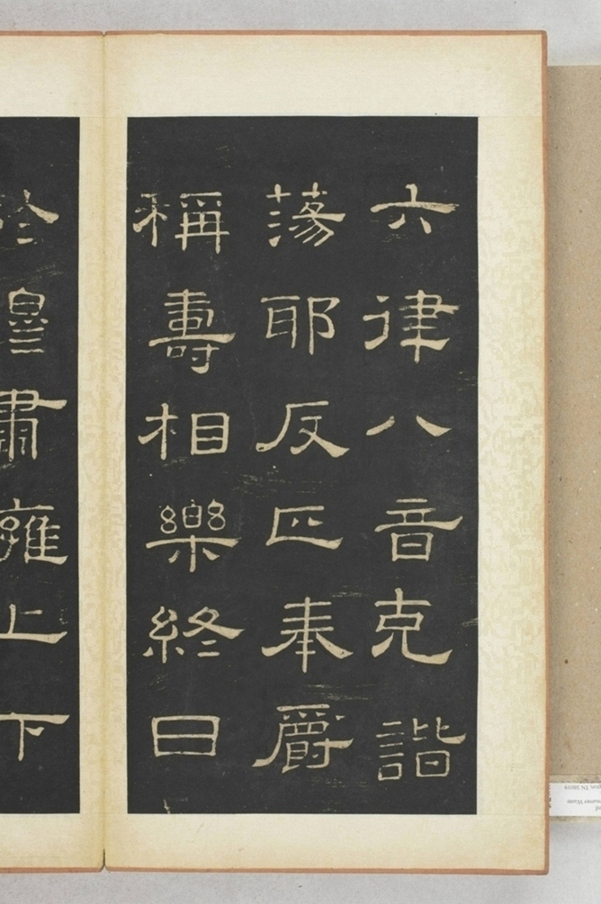 六律八音克諧
蕩耶反正奉爵
稱壽相樂終日
於穆肅雍上下